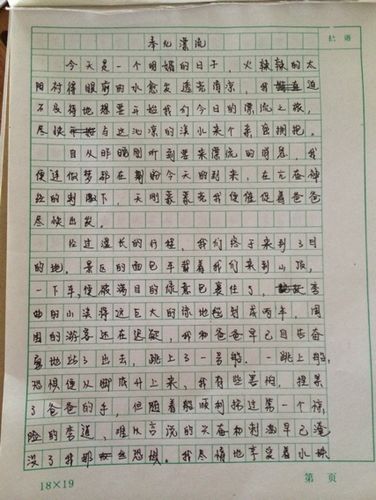 奉化漂流
今天是一个明媚的日子，火辣辣的太
阳衬得眼前的水愈发透亮清凉，我迫
不及待地想要开始我们今日的漂流之旅，
尽快与这沁凉的溪水来个亲密拥抱。
自从昨晚刚听到要来漂流的消息，我
便连做梦都在期的今天的到来，在亢奋神
经的刺激下，天刚蒙蒙亮我便催促着爸爸
尽快出发。
经过漫长的行程，我们终于来到了目
的地。景区的面包车载着我们来到山顶，
一下车，便被满目的绿意包裹住了，弯
曲的山溪将这巨大的绿地毯割成两半。周
围的游客还在迟疑，我和爸爸早已自告奋
勇地跳了出去，跳上了一号船。一跳上船，
恐惧便从脚底升上来，我有些害怕，捏紧
了爸爸的手，但随着船顺利拐过第一个惊
险的弯道，难以言说的兴奋和刺激早已淹
没了我那丝恐惧。我尽情地享受着小
18×19
第 页